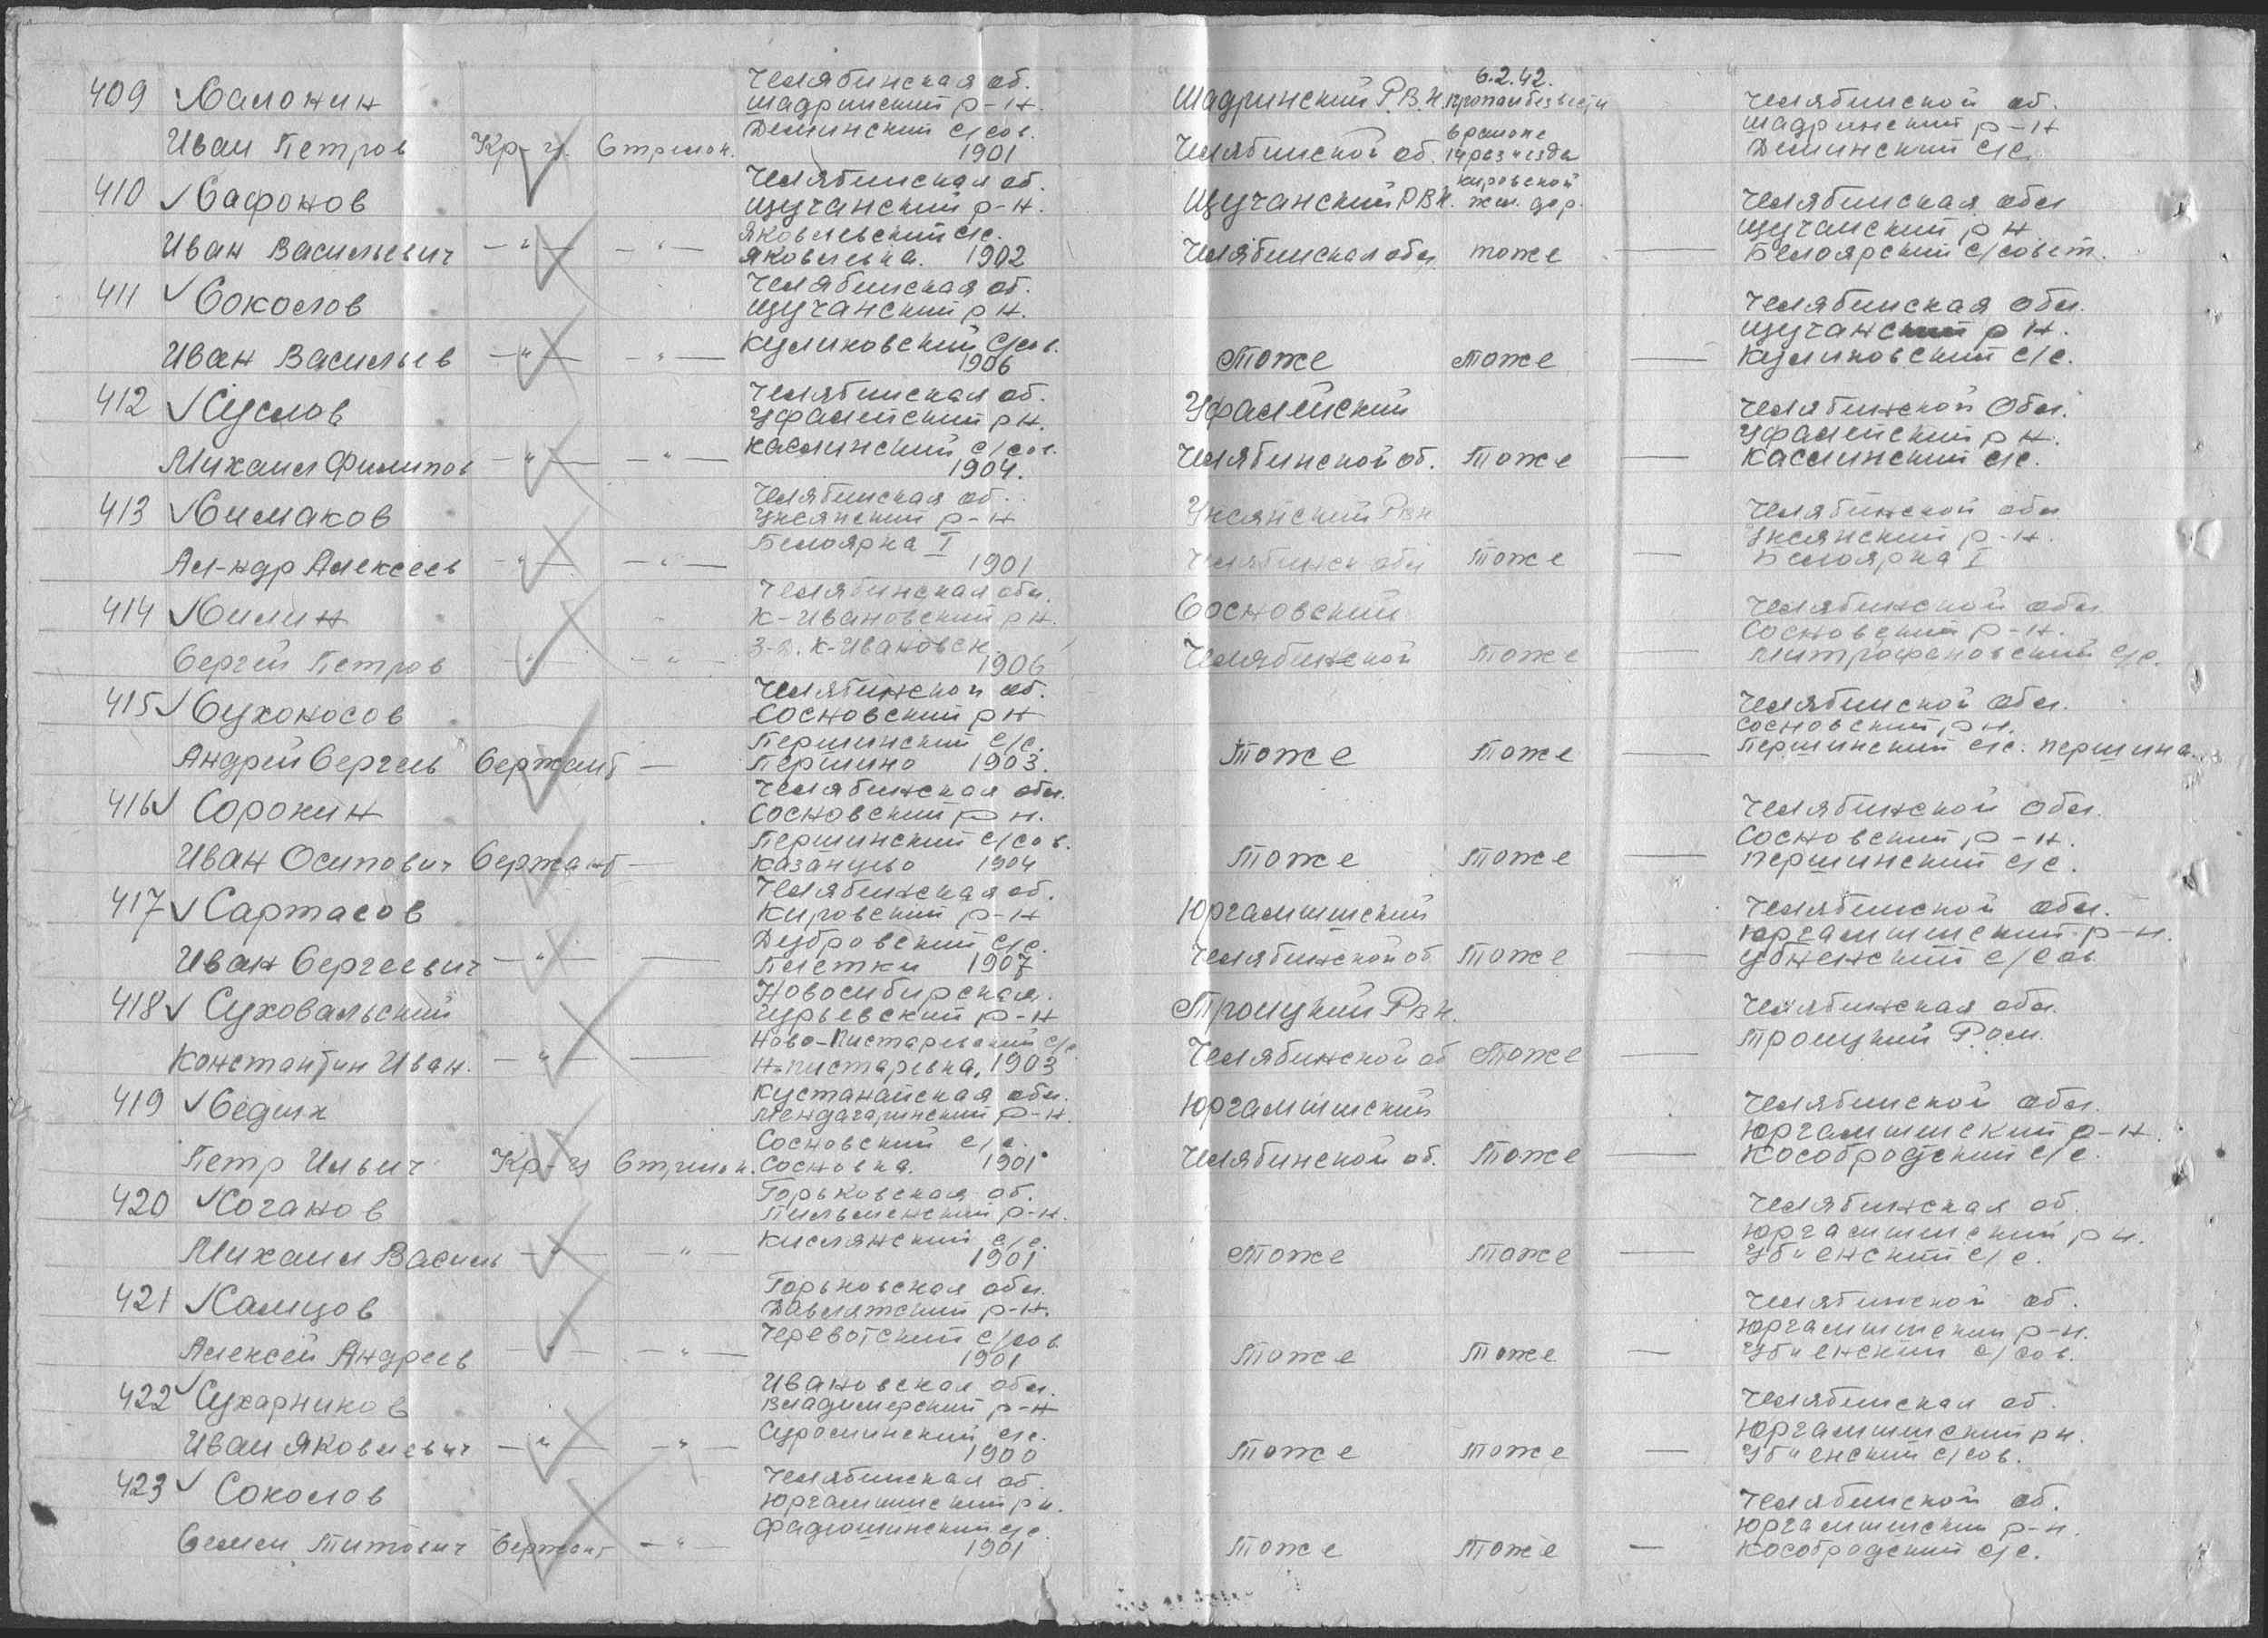 409 Салонин
Иван Петров Кр-ц. Стрелок.
Челябинская об.
Шадринский р-н.
Деминский с/сов.
1901
Шадринский Р.В.К.
Челябинской об.
6.2.42.
пропал без вести
в районе
14 разъезда
кировской
жел. дор.
Челябинской об.
Шадринский р-н
Деминский с/с.
410 Сафонов
Иван Васильевич —"— —"—
Челябинская об.
Щучанский р-н.
Яковлевский с/с.
Яковлевка. 1902
Щучанский РВК.
Челябинская обл. тоже —
Челябинская обл
Щучанский р н.
Белоярский с/совет.
411 Соколов
Иван Васильев —"— —"—
Челябинская об.
Щучанский р н.
Куликовский с/сов.
1906
тоже тоже —
Челябинская обл.
Щучанский р н.
Куликовский с/с.
412 Суслов
Михаил Филипов —"— —"—
Челябинская об.
Уфалейский р н.
Каслинский с/сов.
1904.
Уфалейский
Челябинской об. Тоже —
Челябинской Обл.
Уфалейский р н.
Каслинский с/с.
413 Симаков
Ал-ндр Алексеев —"— —"—
Челябинская об.
Уксянский р-н
Белоярка I
1901
Уксянский Рвк
Челябинск обл Тоже —
Челябинской обл
Уксянский р-н.
Белоярка I
414 Силин
Сергей Петров —"— —"—
Челябинская обл.
К-Ивановский р н.
З-д. К-Ивановск
1906
Сосновский
Челябинской Тоже —
Челябинской обл
Сосновский р-н.
Митрофановский с/с.
415 Сухоносов
Андрей Сергеев Сержант —
Челябинской об.
Сосновский р н
Першинский с/с.
Першино 1903.
Тоже Тоже —
Челябинской обл.
Сосновский р н.
Першинский с/с. першина.
416 Сорокин
Иван Осипович Сержант —
Челябинская обл.
Сосновский р н.
Першинский с/сов.
Казанцево 1904
Тоже Тоже —
Челябинской Обл.
Сосновский р-н.
першинский с/с.
417 Сартасов
Иван Сергеевич —"— —
Челябинская об.
Кировский р-н
Дубровский с/с.
1907
Юргамышский
Челябинской об Тоже —
Челябинской обл.
Юргамышский р-н.
с/сов
418 Суховальский
Константин Иван. —"— —
Новосибирская.
Гурьевский р-н
Ново-Пистеревский с/с
Н-пистеревка. 1903
Троицкий Рвк.
Челябинской об Тоже —
Челябинская обл.
Троицкий Р.о.м.
419 Седых
Петр Ильич Кр-ц Стрелок.
Кустанайская обл.
Мендагаринский р-н.
Сосновский с/с.
Сосновка. 1901
Юргамышский
Челябинской об. Тоже —
Челябинской обл.
Юргамышский р-н.
Кособродский с/с.
420 Соганов
Михаил Василь —"— —"—
Горьковская об.
Пильменский р-н.
Кислянский с/с.
1901
Тоже Тоже —
Челябинская об.
Юргамышский р н.
Убиенский с/с.
421 Самцов
Алексей Андреев —"— —"—
Горьковская обл.
р-н.
с/сов
1901
Тоже Тоже —
Челябинской об.
Юргамышский р-н.
Убиенский с/сов.
422 Сухарников
Иван Яковлевич —"— —"—
Ивановская обл.
Владимерский р-н
Суроминский с/с.
1900
Тоже Тоже —
Челябинская об.
Юргамышский р н.
Убиенский с/сов.
423 Соколов
Семен Титович Сержант —"—
Челябинская об.
Юргамышский р н.
Фадюшинский с/с.
1901
Тоже Тоже —
Челябинской об.
Юргамышский р-н.
Кособродский с/с.